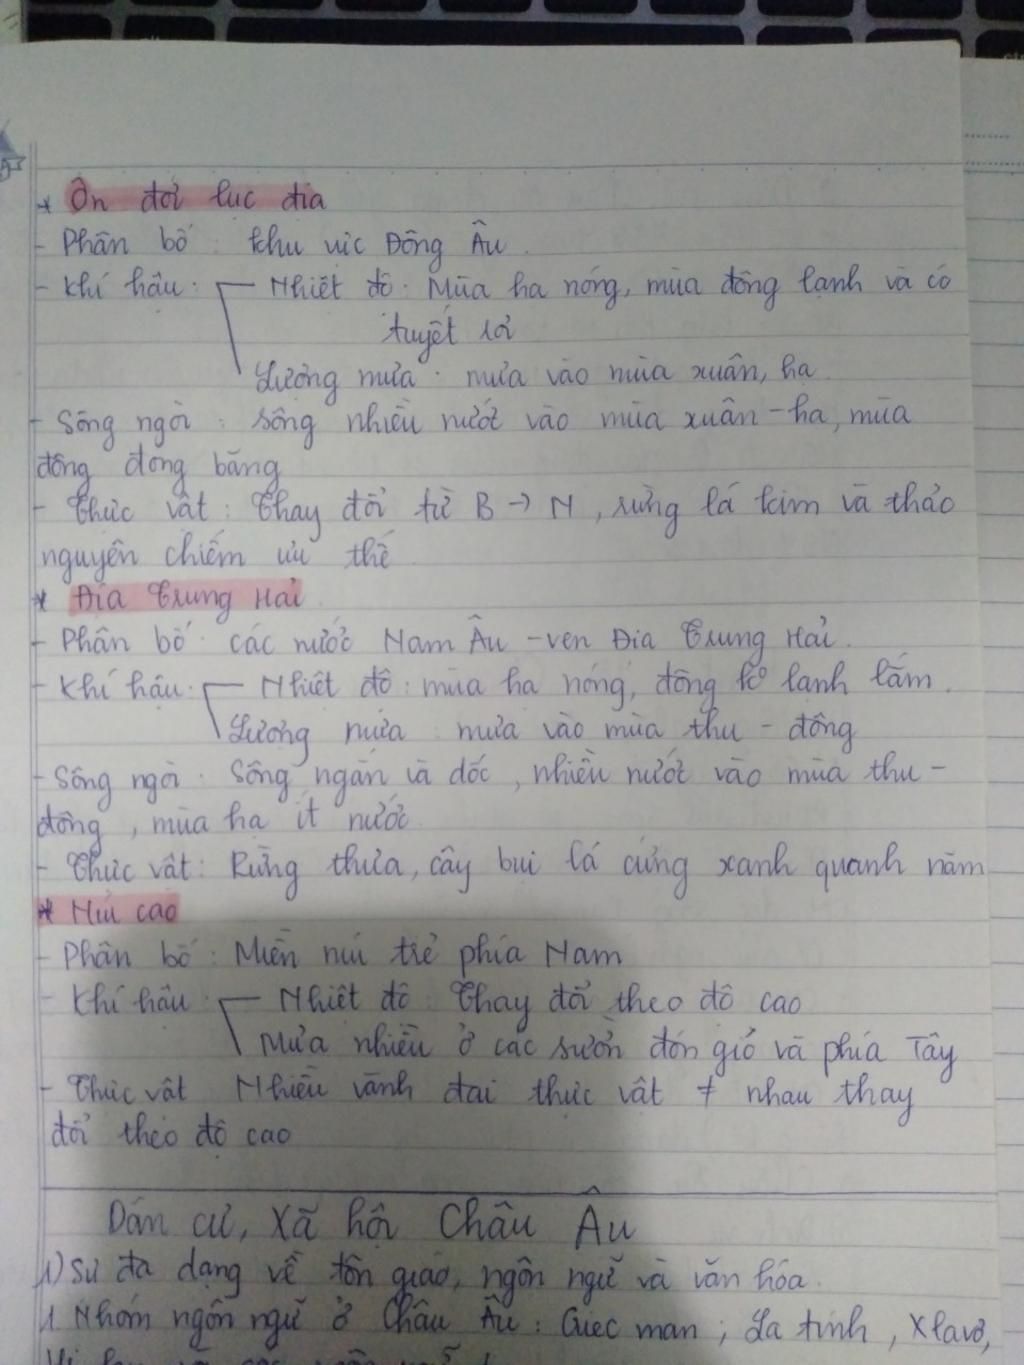 * Ôn đới lục địa
- Phân bố : khu vực Đông Âu.
- Khí hậu : Nhiệt độ : Mùa hạ nóng, mùa đông lạnh và có
tuyết rơi
Lượng mưa : mưa vào mùa xuân, hạ
- Sông ngòi : sông nhiều nước vào mùa xuân - hạ, mùa
đông đóng băng
- Thực vật : Thay đổi từ B → N, rừng lá kim và thảo
nguyên chiếm ưu thế
* Địa Trung Hải
- Phân bố : các nước Nam Âu - ven Địa Trung Hải.
- Khí hậu : Nhiệt độ : mùa hạ nóng, đông ko lạnh lắm.
Lượng mưa : mưa vào mùa thu - đông
- Sông ngòi : Sông ngắn và dốc, nhiều nước vào mùa thu -
đông, mùa hạ ít nước
- Thực vật : Rừng thưa, cây bụi lá cứng xanh quanh năm
* Núi cao
- Phân bố : Miền núi trẻ phía Nam
- Khí hậu : Nhiệt độ : Thay đổi theo độ cao
Mưa nhiều ở các sườn đón gió và phía Tây
- Thực vật Nhiều vành đai thực vật ≠ nhau thay
đổi theo độ cao
Dân cư, Xã hội Châu Âu
1) Sự đa dạng về tôn giáo, ngôn ngữ và văn hóa.
1. Nhóm ngôn ngữ ở Châu Âu : Giéc man ; La tinh, Xlavơ,